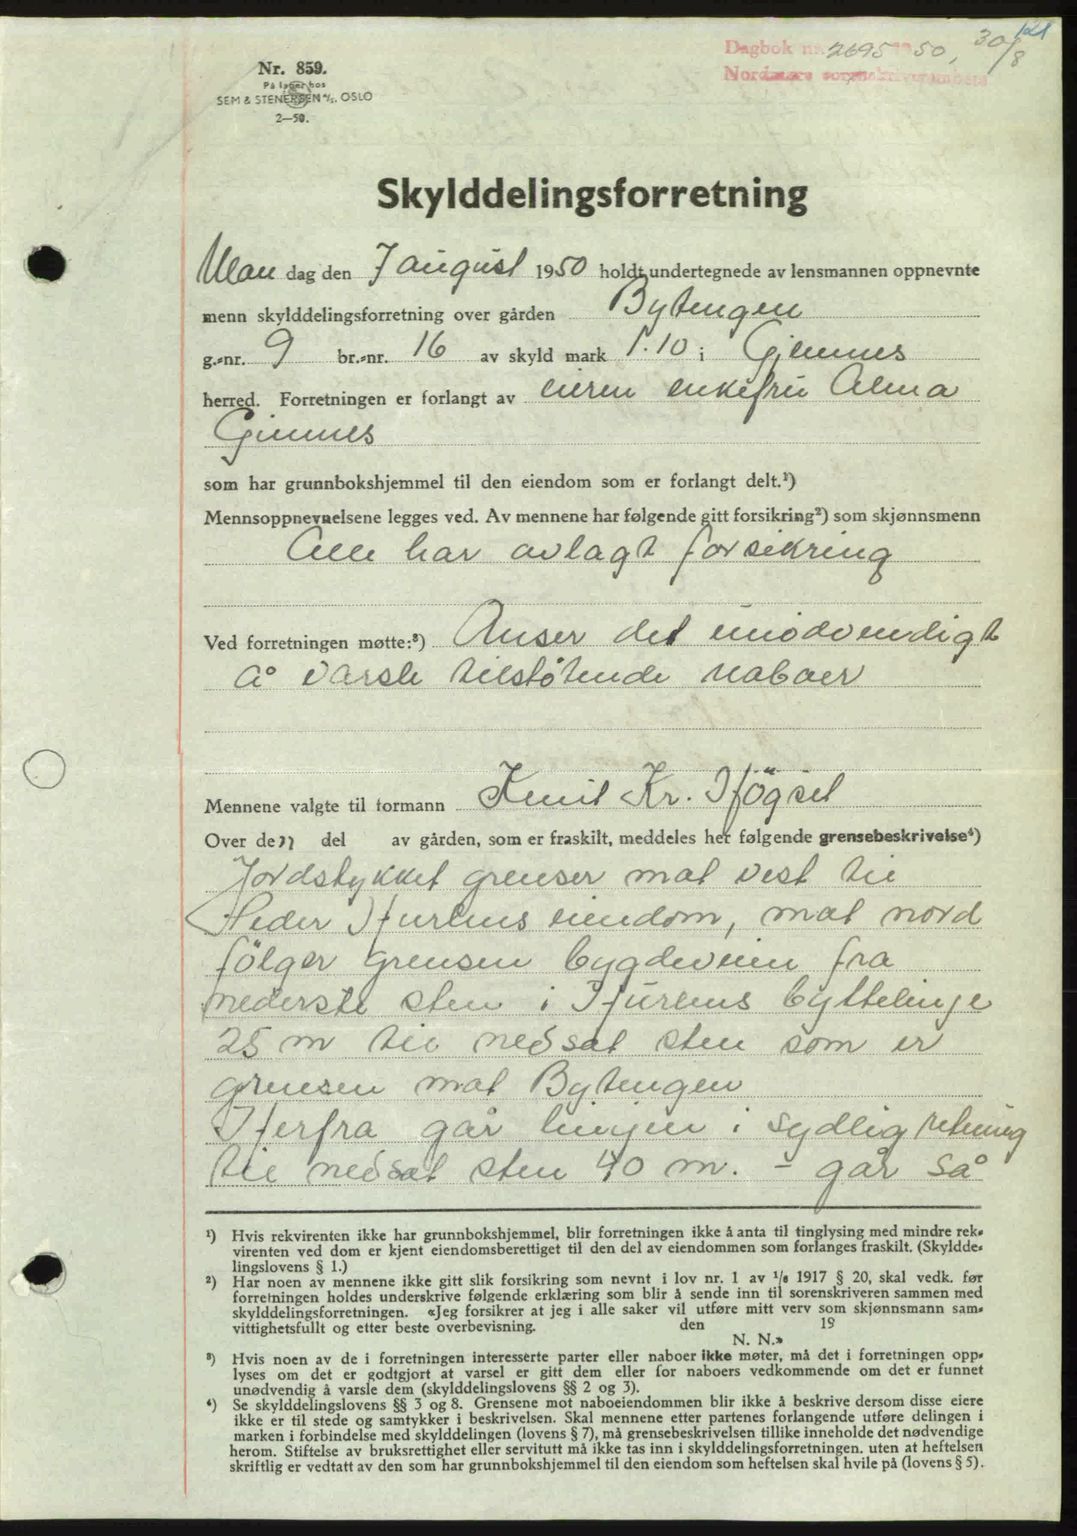 121
Dagbok nr. 2695 1950, 30/8
Nordmøre sorenskriverembete
Nr. 859.
På lager hos
SEM & STENERSEN A/S, OSLO
2—50.
Skylddelingsforretning
Man dag den 7 august 1950 holdt undertegnede av lensmannen oppnevnte
menn skylddelingsforretning over gården Bytengen
g.-nr. 9 br.-nr. 16 av skyld mark 1.10 i Gjemnes
herred. Forretningen er forlangt av eieren enkefru Alma
Gimnes
som har grunnbokshjemmel til den eiendom som er forlangt delt.¹)
Mennsoppnevnelsene legges ved. Av mennene har følgende gitt forsikring²) som skjønnsmenn
Alle har avlagt forsikring
Ved forretningen møtte:³) Anser det unødvendigt
å varsle tilstøtende naboer
Mennene valgte til formann Knut Kr. Høgset
Over den del av gården, som er fraskilt, meddeles her følgende grensebeskrivelse⁴)
Jordstykket grenser mot vest til
Peder Furlens eiendom, mot nord
følger grensen bygdeveien fra
nederste sten i Furlens byttelinje
25 m til nedsat sten som er
grensen mot Bytengen
Herfra går linjen i sydlig retning
til nedsat sten 40 m. – går så
¹) Hvis rekvirenten ikke har grunnbokshjemmel, blir forretningen ikke å anta til tinglysing med mindre rek-
virenten ved dom er kjent eiendomsberettiget til den del av eiendommen som forlanges fraskilt. (Skyldde-
lingslovens § 1.)
²) Har noen av mennene ikke gitt slik forsikring som nevnt i lov nr. 1 av 1/6 1917 § 20, skal vedk. før
forretningen holdes underskrive følgende erklæring som blir å sende inn til sorenskriveren sammen med
skylddelingsforretningen. «Jeg forsikrer at jeg i alle saker vil utføre mitt verv som skjønnsmann sam-
vittighetsfullt og etter beste overbevisning. den 19
N. N.»
³) Hvis noen av de i forretningen interesserte parter eller naboer ikke møter, må det i forretningen opp-
lyses om det er godtgjort at varsel er gitt dem eller for naboers vedkommende om det er funnet
unødvendig å varsle dem (skylddelingslovens §§ 2 og 3).
⁴) Se skylddelingslovens §§ 3 og 8. Grensene mot naboeiendommen blir ikke å beskrive dersom disse eiere
ikke er til stede og samtykker i beskrivelsen. Skal mennene etter partenes forlangende utføre delingen i
marken i forbindelse med skylddelingen (lovens § 7), må grensebeskrivelsen tillike inneholde det nødvendige
herom. Stiftelse av bruksrettighet eller servitutt må ikke tas inn i skylddelingsforretningen. uten at heftelsen
skriftlig er vedtatt av den som har grunnbokshjemmel til den eiendom som heftelsen skal hvile på (lovens § 5).